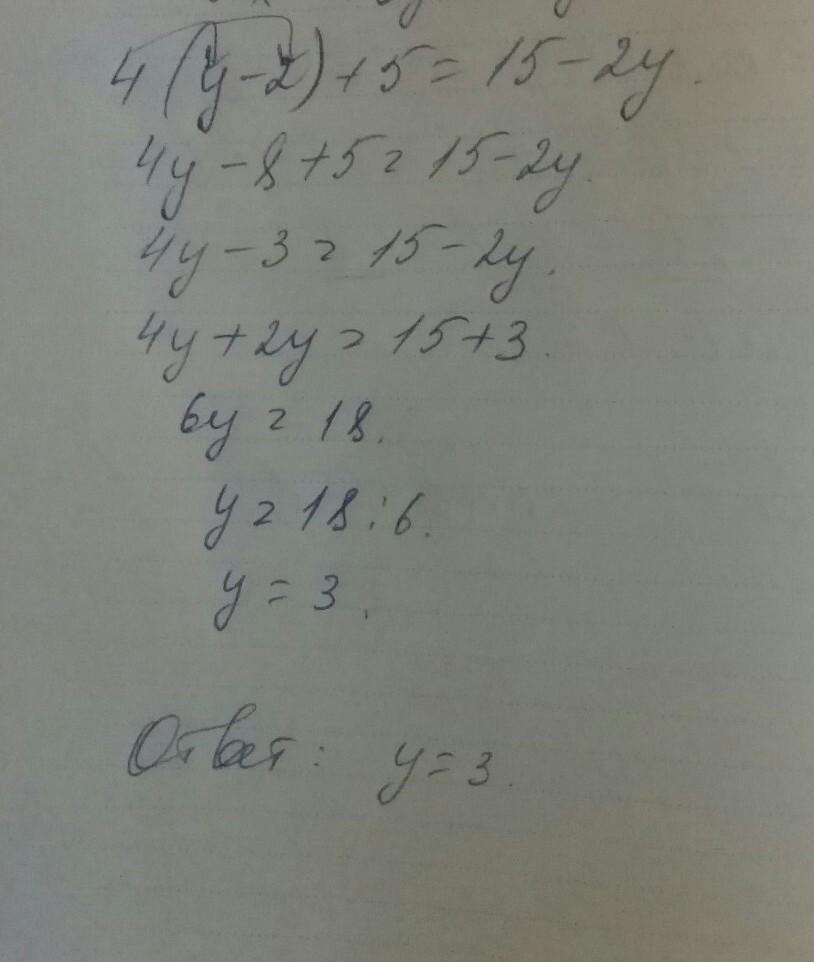 4(y-2)+5=15-2y.
4y-8+5=15-2y.
4y-3=15-2y.
4y+2y=15+3.
6y=18.
y=18:6.
y=3.
Ответ: y=3.